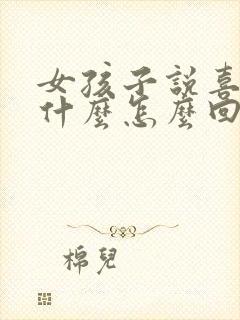 女孩子說喜
什麼怎麼回
棉兒